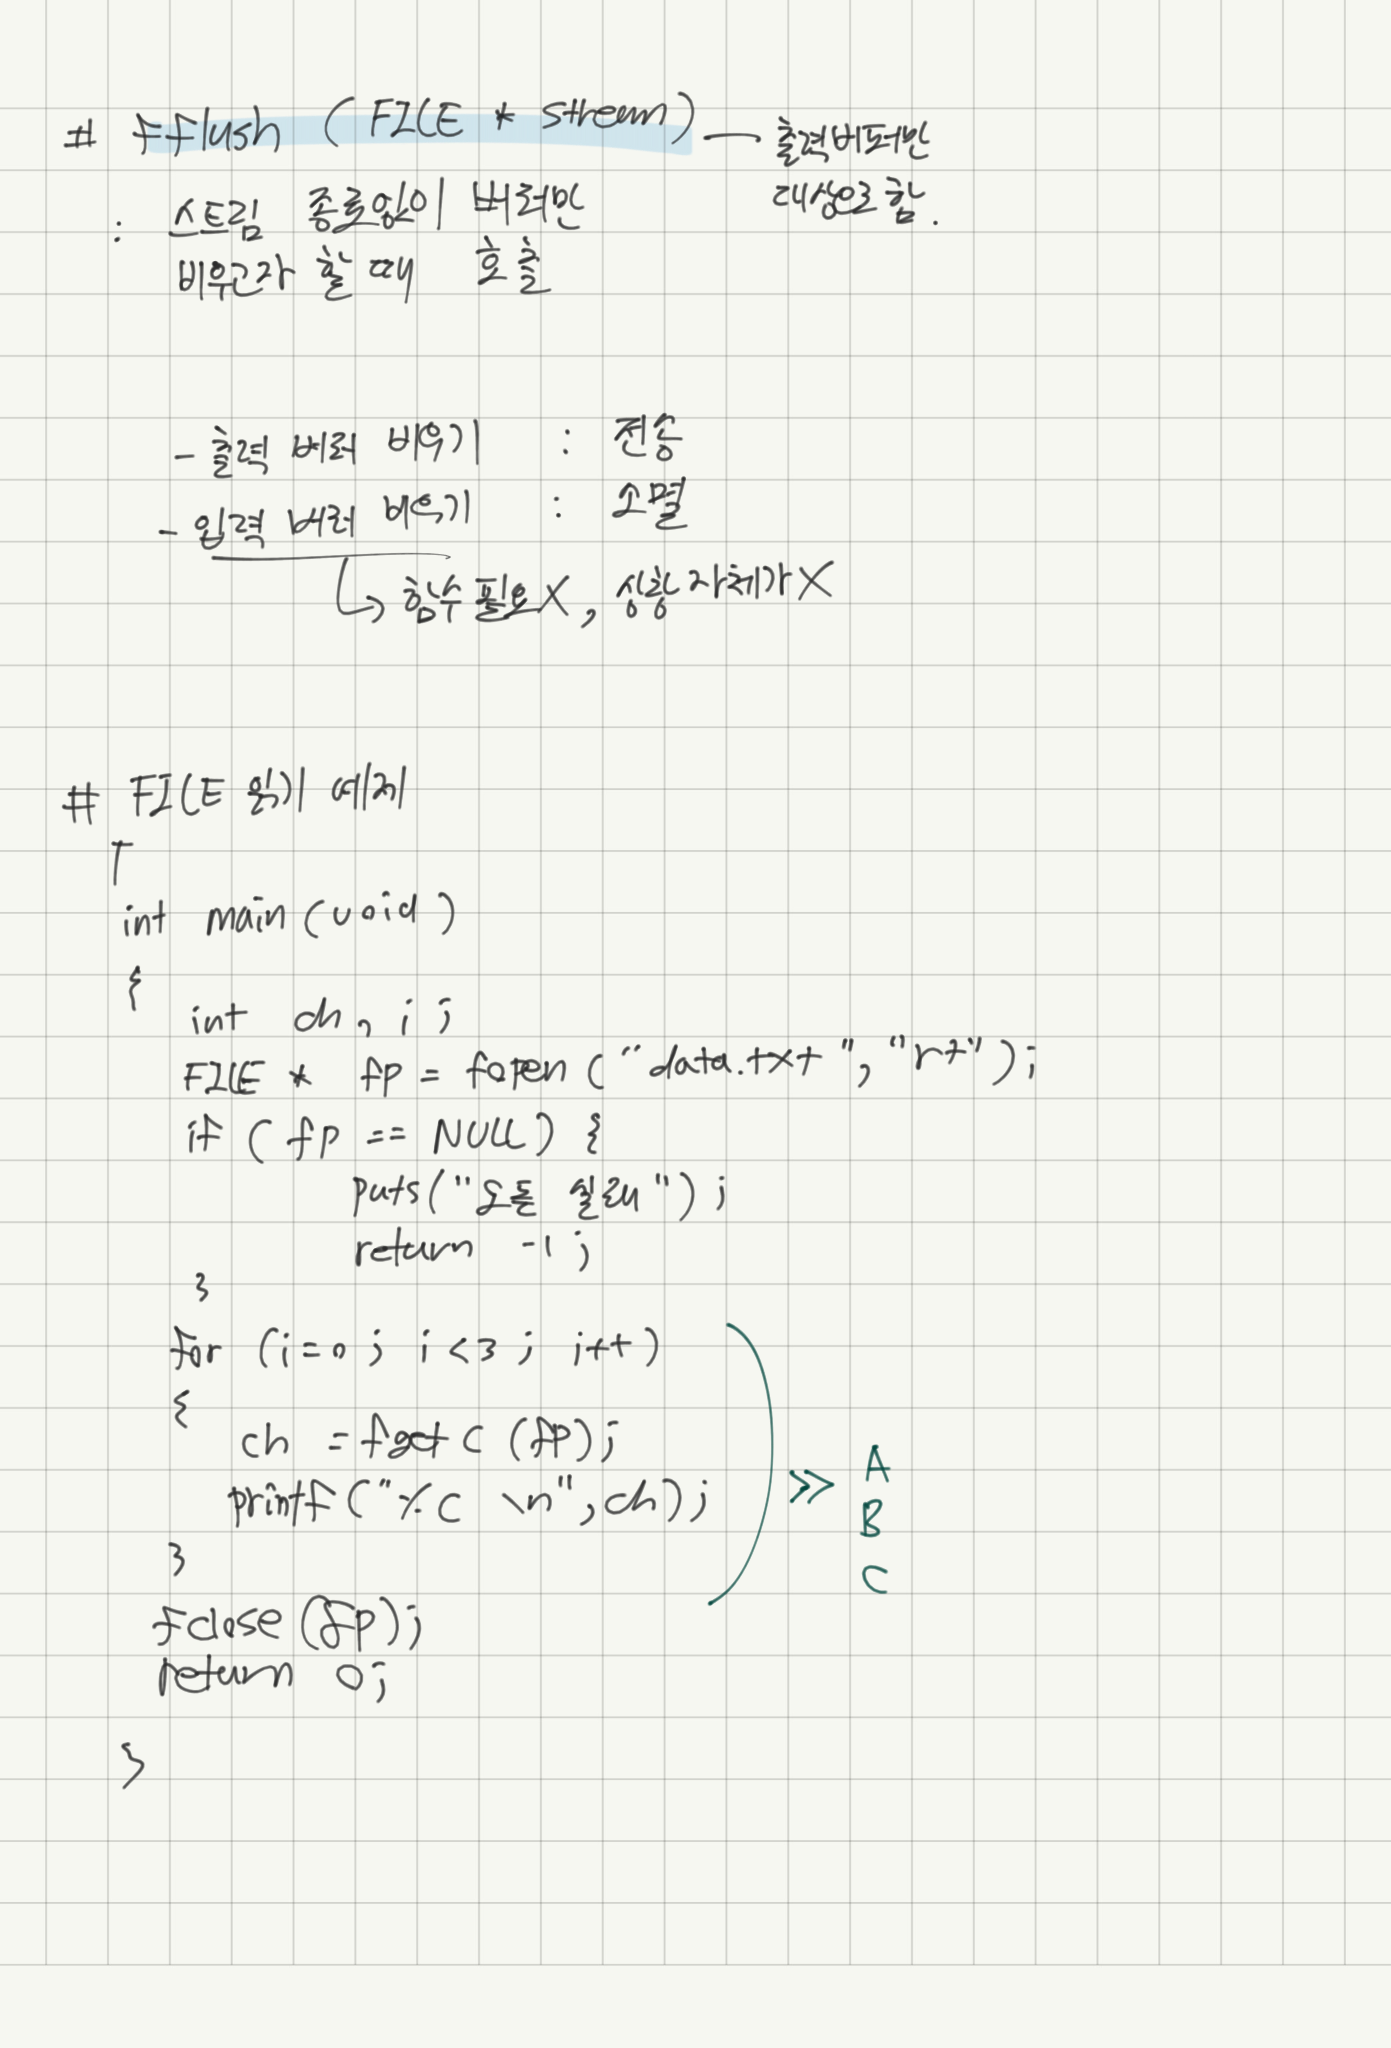 # fflush (FILE * stream) — 출력버퍼만
대상으로 함.
: 스트림 종료없이 버퍼만
비우고자 할 때 호출
- 출력 버퍼 비우기 : 전송
- 입력 버퍼 비우기 : 소멸
↳ 함수 필요X, 상황 자체가 X
# FILE 읽기 예제
int main(void)
{
int ch, i;
FILE * fp = fopen("data.txt", "rt");
if (fp == NULL) {
puts("오픈 실패");
return -1;
}
for (i=0; i<3; i++)
{
ch = fgetc (fp);
printf("%c \n", ch);
}
≫ A
B
C
fclose(fp);
return 0;
}